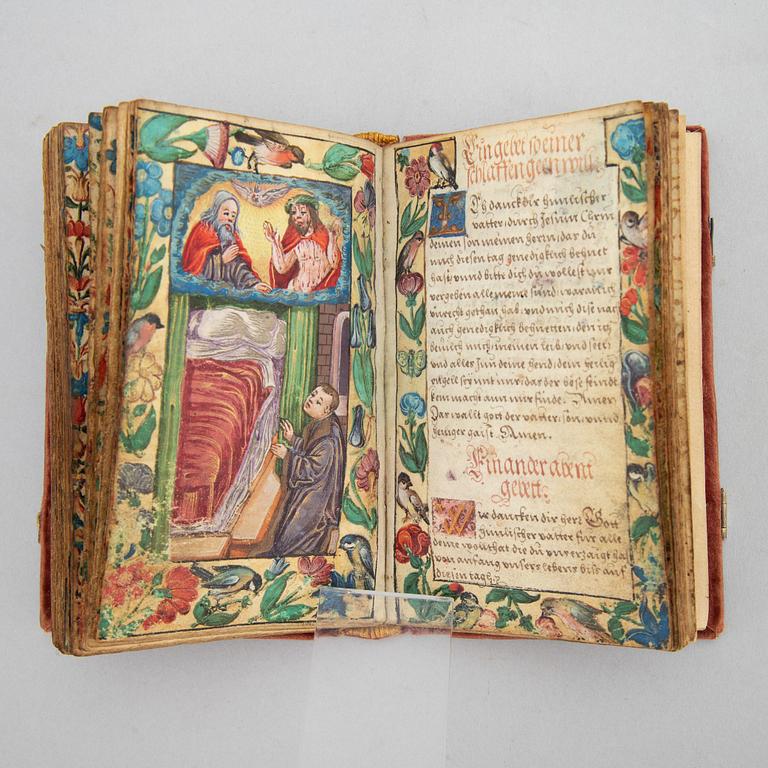 Ein gebet so einer
schlaffen geen will.
Ich danck dir himlischer
vatter, durch Jesum Chrm
deinen son meinen hern, das du
mich diesen tag genedigklich behuet
hast, und bitte dich du wollest mir
vergeben alle meine sund, wa ich
unrecht gethan hab, und mich dise nacht
auch genedigklich behuetten, den ich
bevilch mich, meinen leib, und seel
und alles jnn deine hend, dein heilig
engel sey mit mir, das der böse feindt
kein macht ann mir finde. Amen.
Das wallt gott der vatter, son, unnd
heiliger gaist. Amen.
Ein ander abent
gebett.
Wir dancken dir herr Gott
himlischer vatter für alle
deine wolthat die du uns erzaigt hast
von anfang unsers lebens biss auf
diesen tag